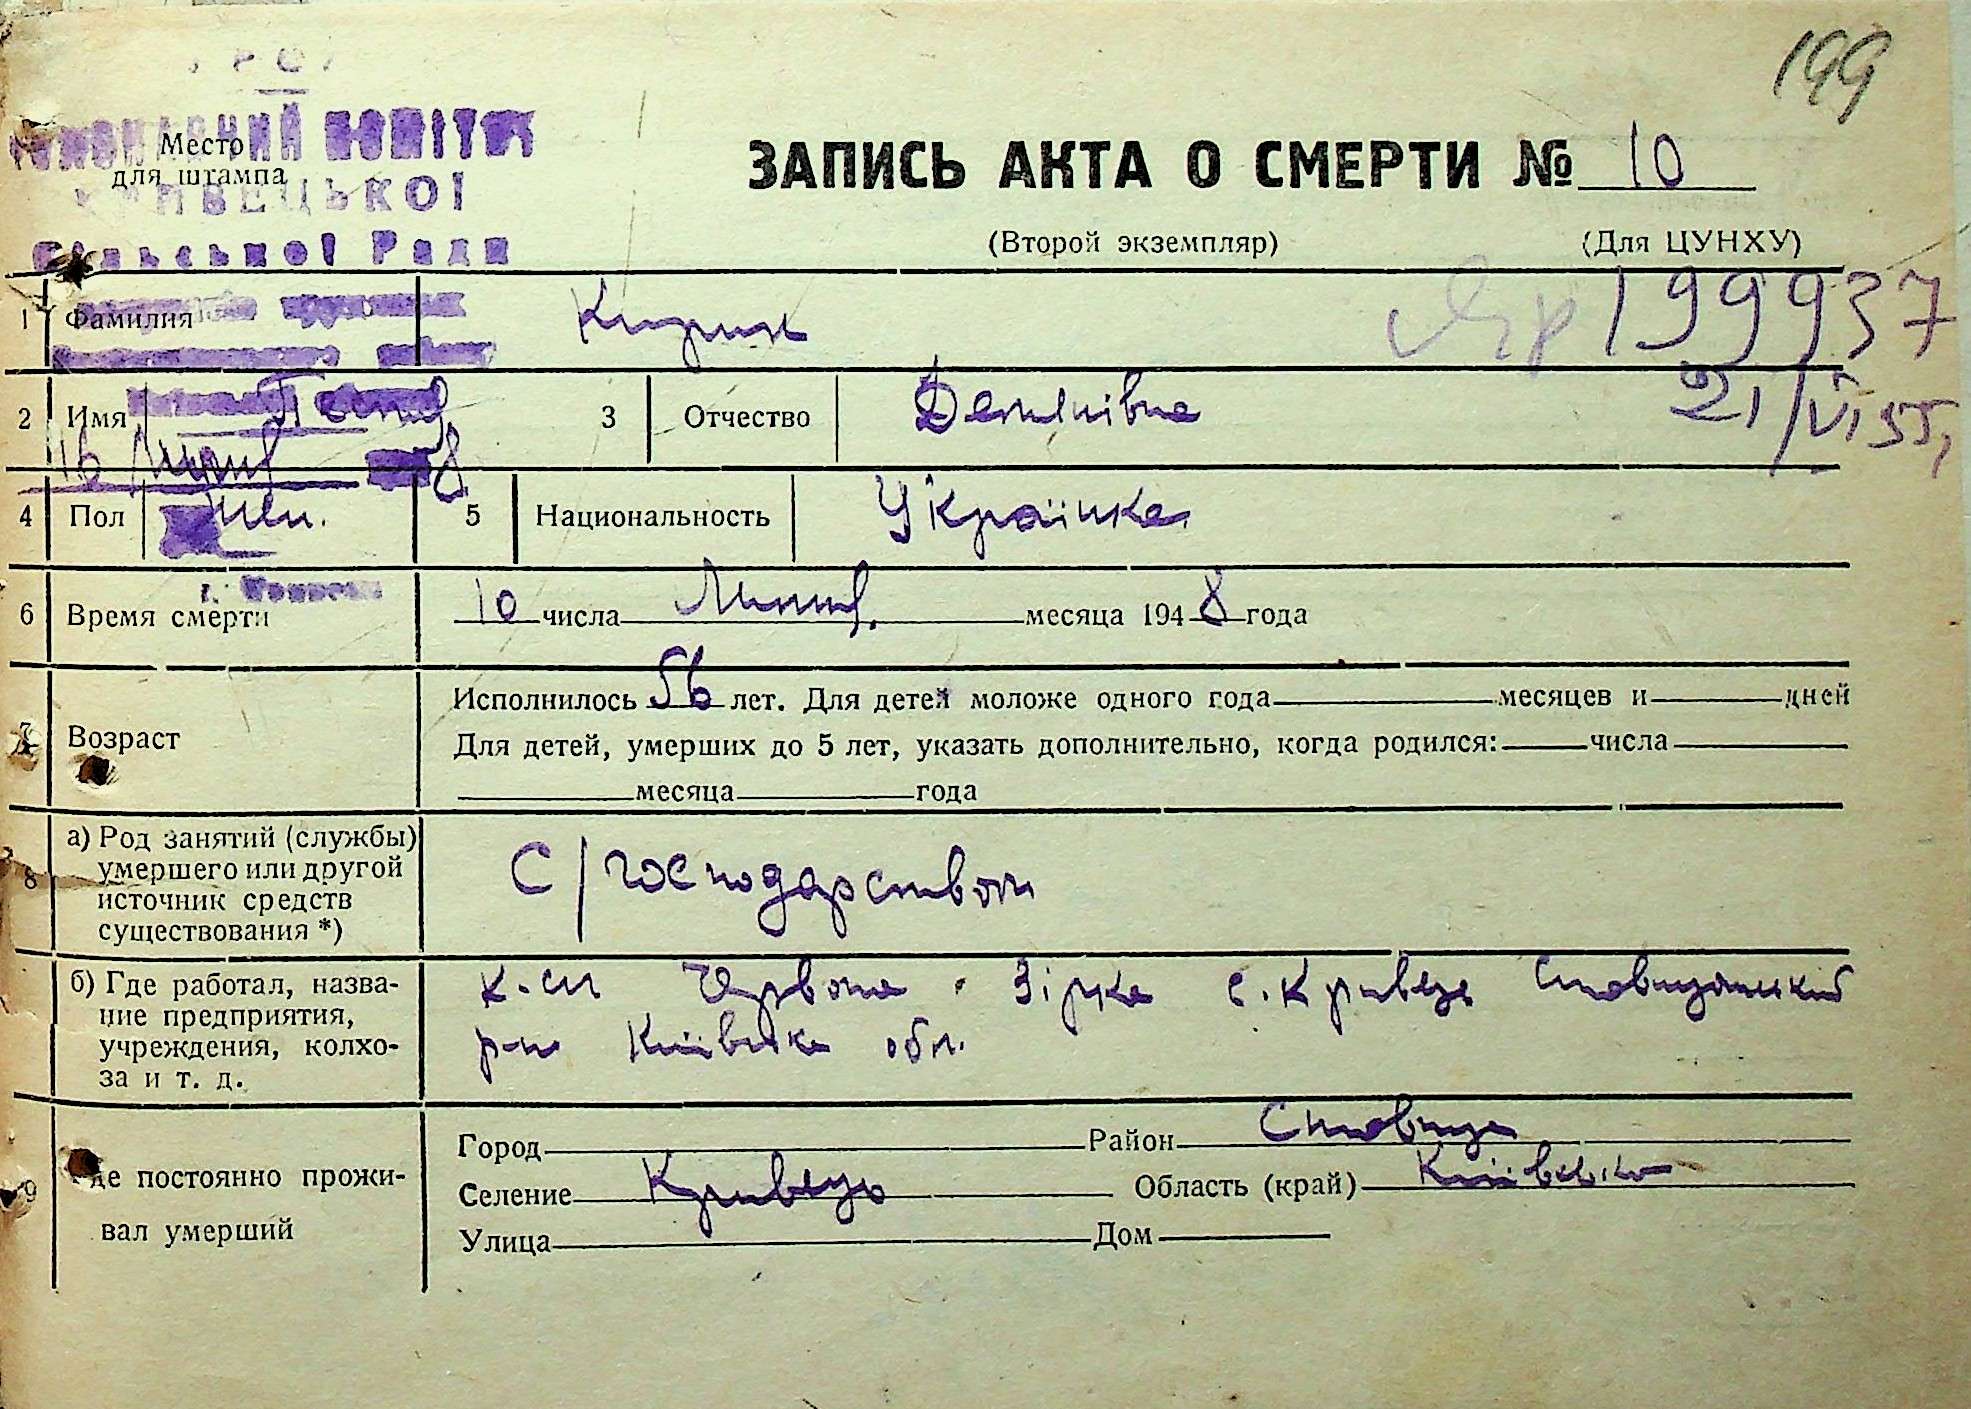 199
УРСР
ВИКОНАВЧИЙ КОМІТЕТ
Место
для штампа
КРИВЕЦЬКОЇ
Сільської Ради
ЗАПИСЬ АКТА О СМЕРТИ № 10
(Второй экземпляр) (Для ЦУНХУ)
1 Фамилия
199937
2 Имя 3 Отчество Дем'янівна
21/VI 55,
16 Липня 8
4 Пол жін. 5 Национальность Українка
6 Время смерти 10 числа Липня месяца 1948 года
7 Возраст
Исполнилось 56 лет. Для детей моложе одного года месяцев и дней
Для детей, умерших до 5 лет, указать дополнительно, когда родился: числа
месяца года
8 а) Род занятий (службы)
умершего или другой
источник средств
существования *)
С/господарством
б) Где работал, назва-
ние предприятия,
учреждения, колхо-
за и т. д.
к-сп Червона Зірка с. Кривець Ставищанський
р-н Київська обл.
9 Где постоянно прожи-
вал умерший
Город Район Ставище
Селение Кривець Область (край) Київська
Улица Дом